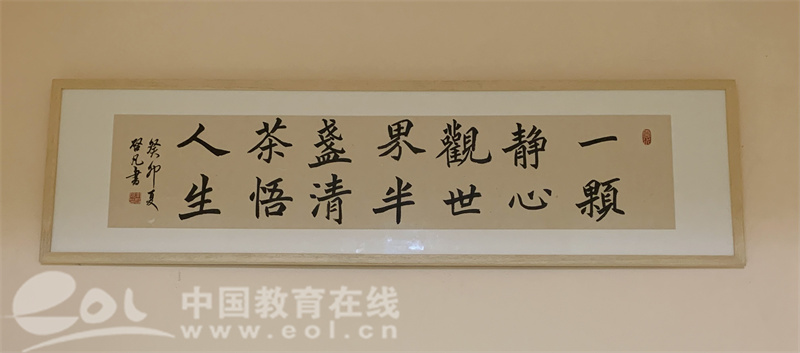 一顆
静心
觀世
界半
盞清
茶悟
人生
癸卯夏
啓凡書
eol 中国教育在线
www.eol.cn